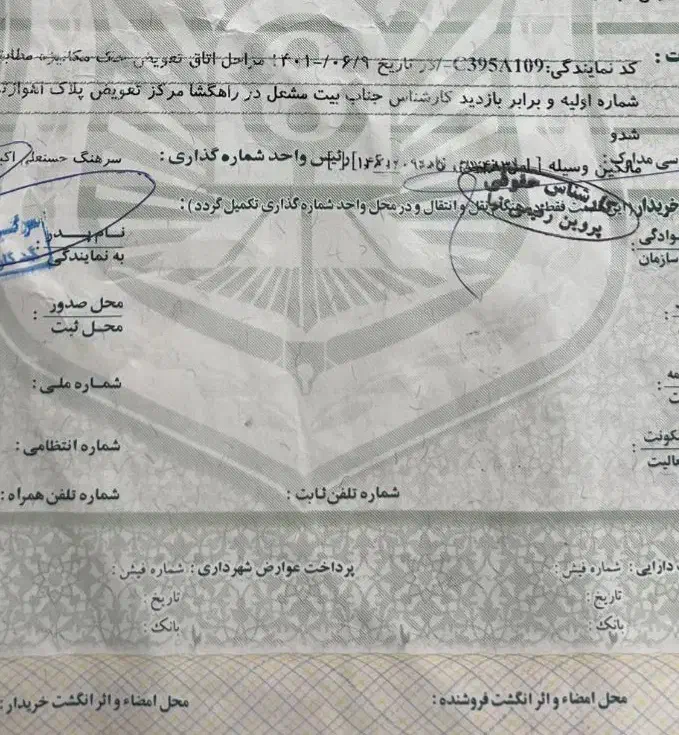 ت :
کد نمایندگی:C395A109-/در تاریخ ۱۴۰۱/۰۶/۹ مراحل اتاق تعویض حک مکانیزه مطابق
شماره اولیه و برابر بازدید کارشناس جناب بیت مشعل در راهگشا مرکز تعویض پلاک اهواز
شدو
سی مدارک: مالکین وسیله رئیس واحد شماره گذاری : سرهنگ حسنعلی
کارشناس حقوقی
پروین
خریدار: این قسمت فقط در هنگام نقل و انتقال و در محل واحد شماره گذاری تکمیل گردد) :
وادگی : نام پدر :
سازمان به نمایندگی
محل صدور :
محل ثبت
مه شماره ملی :
ت :
کونت شماره انتظامی :
عالیت :
شماره تلفن ثابت : شماره تلفن همراه :
دارایی : شماره فیش : پرداخت عوارض شهرداری : شماره فیش :
تاریخ : تاریخ :
بانک : بانک :
محل امضاء و اثر انگشت فروشنده : محل امضاء و اثر انگشت خریدار :